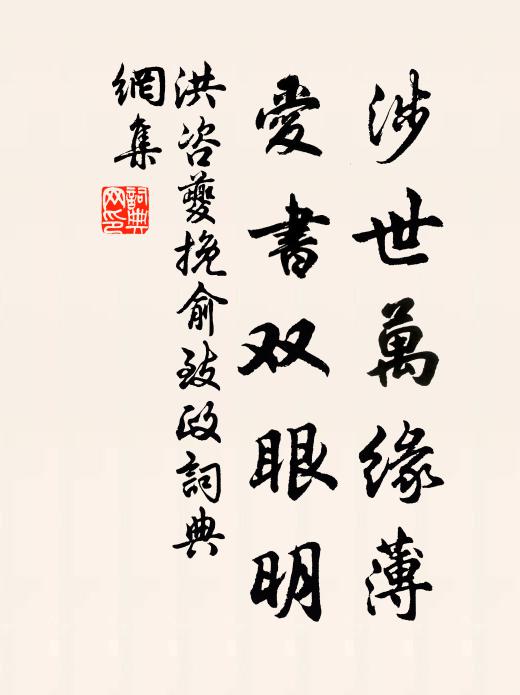 涉世萬緣薄
愛書双眼明
洪咨夔挽俞致政詞典
網集
詞典网印